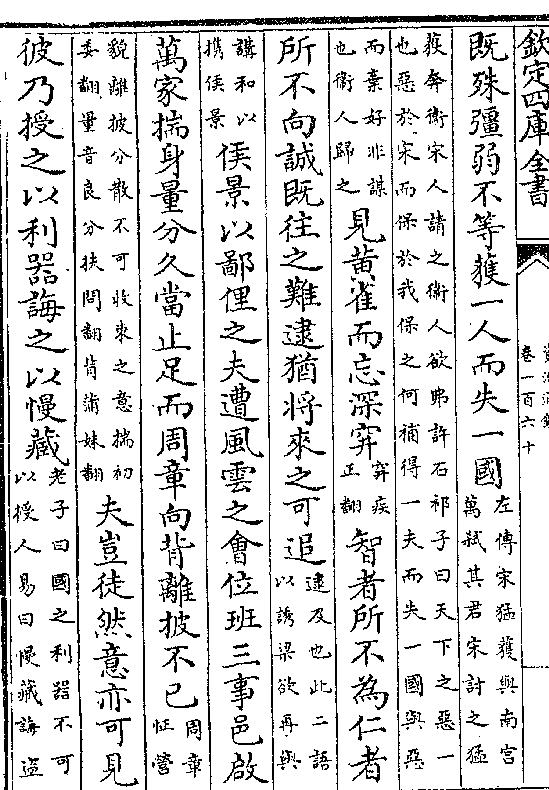 欽定四庫全書
資治通鑑
卷一百六十
既殊彊弱不等獲一人而失一國
左傳宋猛獲與南宮
萬弑其君宋討之猛
獲奔衞宋人請之衞人欲弗許石祁子曰天下之惡一
也惡於宋而保於我保之何補得一夫而失一國與惡
而棄好非謀
也衞人歸之
見黄雀而忘深穽
穽疾
正翻
智者所不為仁者
所不向誠既往之難逮猶將來之可追
逮及也此二語
以誘梁欲再與
講和以
攜侯景
侯景以鄙俚之夫遭風雲之會位班三事邑啟
萬家揣身量分久當止足而周章向背離披不已
周章
怔營
貌離披分散不可收束之意揣初
委翻量音良分扶問翻背蒲妹翻
夫豈徒然意亦可見
彼乃授之以利器誨之以慢藏
老子曰國之利器不可
以授人易曰慢藏誨盗